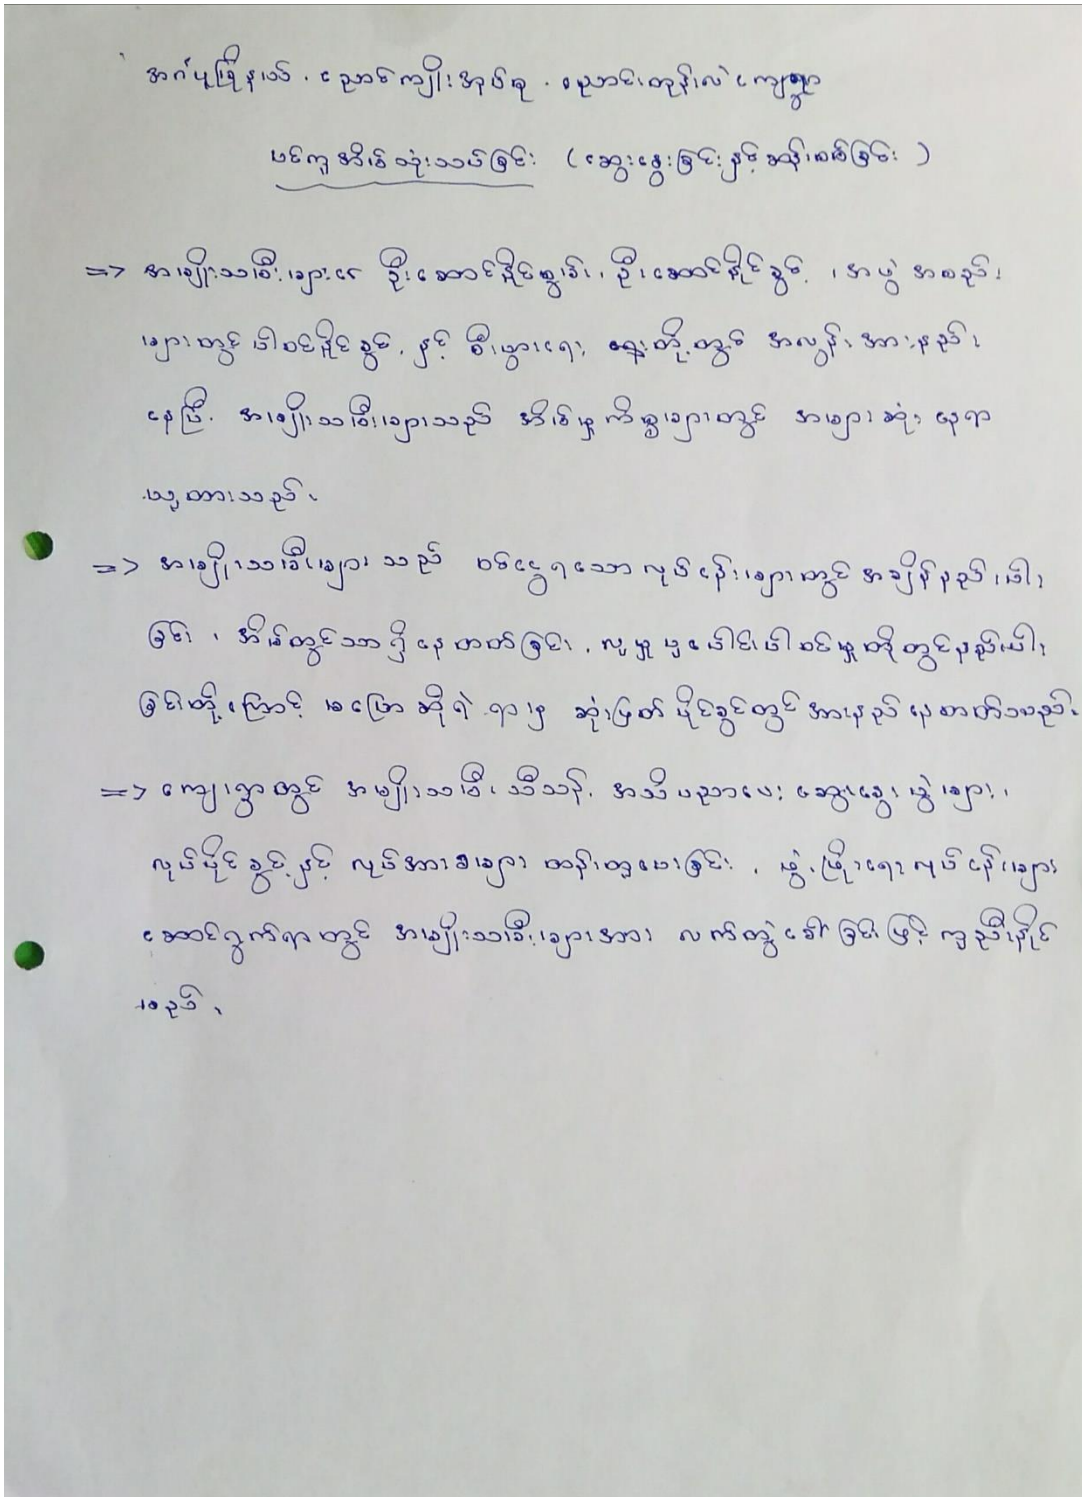 အင်္ဂပူမြို့နယ် ၊ ညောင်ကျိုးအုပ်စု ၊ ညောင်းတုန်းလဲကျေးရွာ
ပင်ကူအိမ်သုံးသပ်ခြင်း (ဆွေးနွေးခြင်းနှင့်ဆန်းစစ်ခြင်း)
=> အမျိုးသမီးများ၏ ဦးဆောင်နိုင်စွမ်း၊ ဦးဆောင်နိုင်ခွင့် ၊ အဖွဲ့အစည်း
များတွင်ပါဝင်နိုင်ခွင့် နှင့် စီးပွားရေး ရှေ့တို့တွင် အလွန်အားနည်း
နေပြီး အမျိုးသမီးများသည် အိမ်မှုကိစ္စများတွင် အများဆုံး နေရာ
ယူထားသည်။
=> အမျိုးသမီးများသည် ဝင်ငွေရသောလုပ်ငန်းများတွင် အချိန်နည်းပါး
ခြင်း ၊ အိမ်တွင်သာရှိနေတတ်ခြင်း ၊ လူမှုပူပေါင်းပါဝင်မှုတို့တွင်နည်းပါး
ခြင်းတို့ကြောင့် မပြောဆိုရဲရာမှ ဆုံးဖြတ်ပိုင်ခွင့်တွင်အားနည်းနေတတ်သည်။
=> ကျေးရွာတွင် အမျိုးသမီး သီးသန့် အသိပညာပေး ဆွေးနွေးပွဲများ ၊
လုပ်ပိုင်ခွင့်နှင့် လုပ်အားခများ တန်းတူပေးခြင်း ၊ ဖွံ့ဖြိုးရေးလုပ်ငန်းများ
ဆောင်ရွက်ရာတွင် အမျိုးသမီးများအား လက်တွဲခေါ်ခြင်းဖြင့် ကူညီနိုင်
မည်။